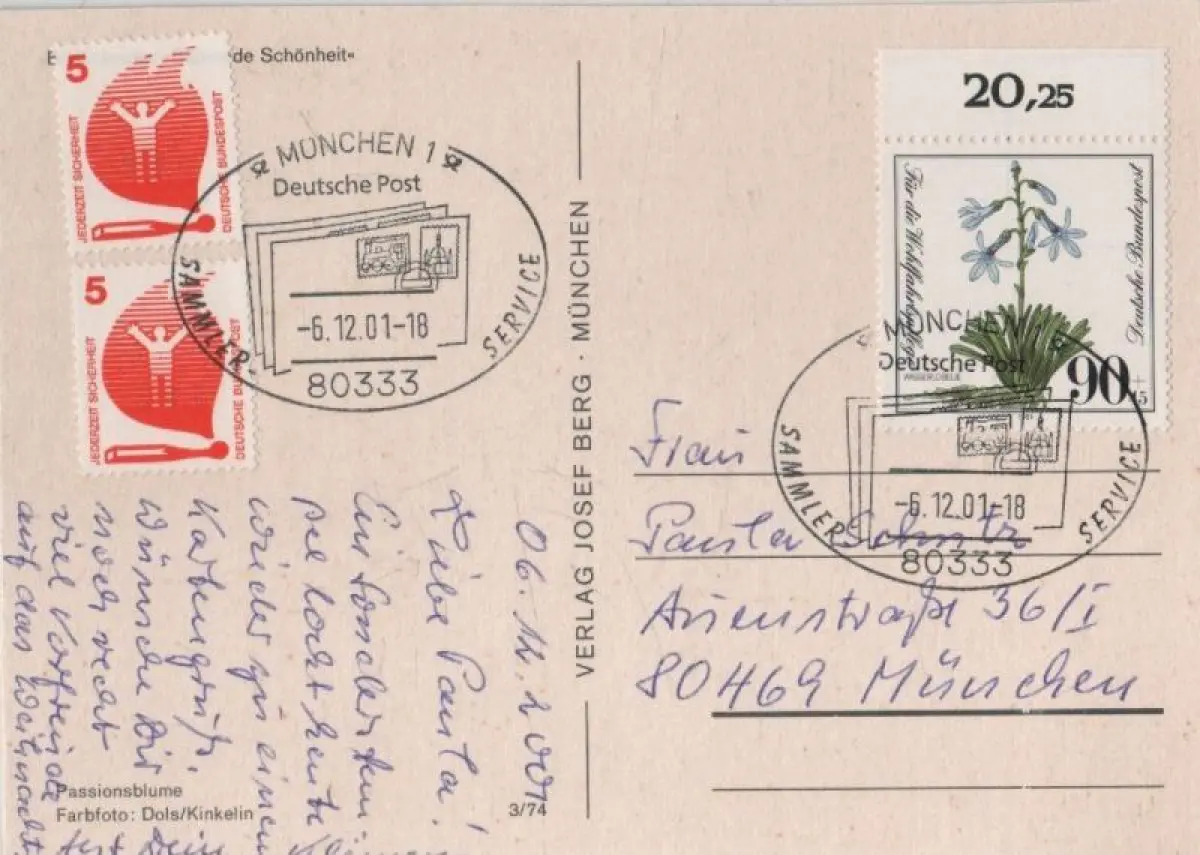 de Schönheit«
5
JEDERZEIT SICHERHEIT
DEUTSCHE BUNDESPOST
5
JEDERZEIT SICHERHEIT
DEUTSCHE BUNDESPOST
MÜNCHEN 1
Deutsche Post
-6.12.01-18
SAMMLER-
SERVICE
80333
06.12.2001
Liebe Paula!
Ein Sonderstem-
pel lockt heute
wieder zu einem
Kartengruß.
Wünsche Dir
noch recht
viel Vorfreude
auf das Weihnachts
Passionsblume
Farbfoto: Dols/Kinkelin
3/74
VERLAG JOSEF BERG · MÜNCHEN
20,25
Für die Wohlfahrtspflege
Deutsche Bundespost
90
MÜNCHEN
Deutsche Post
-6.12.01-18
SAMMLER
SERVICE
80333
Frau
Paula
36/I
80469 München